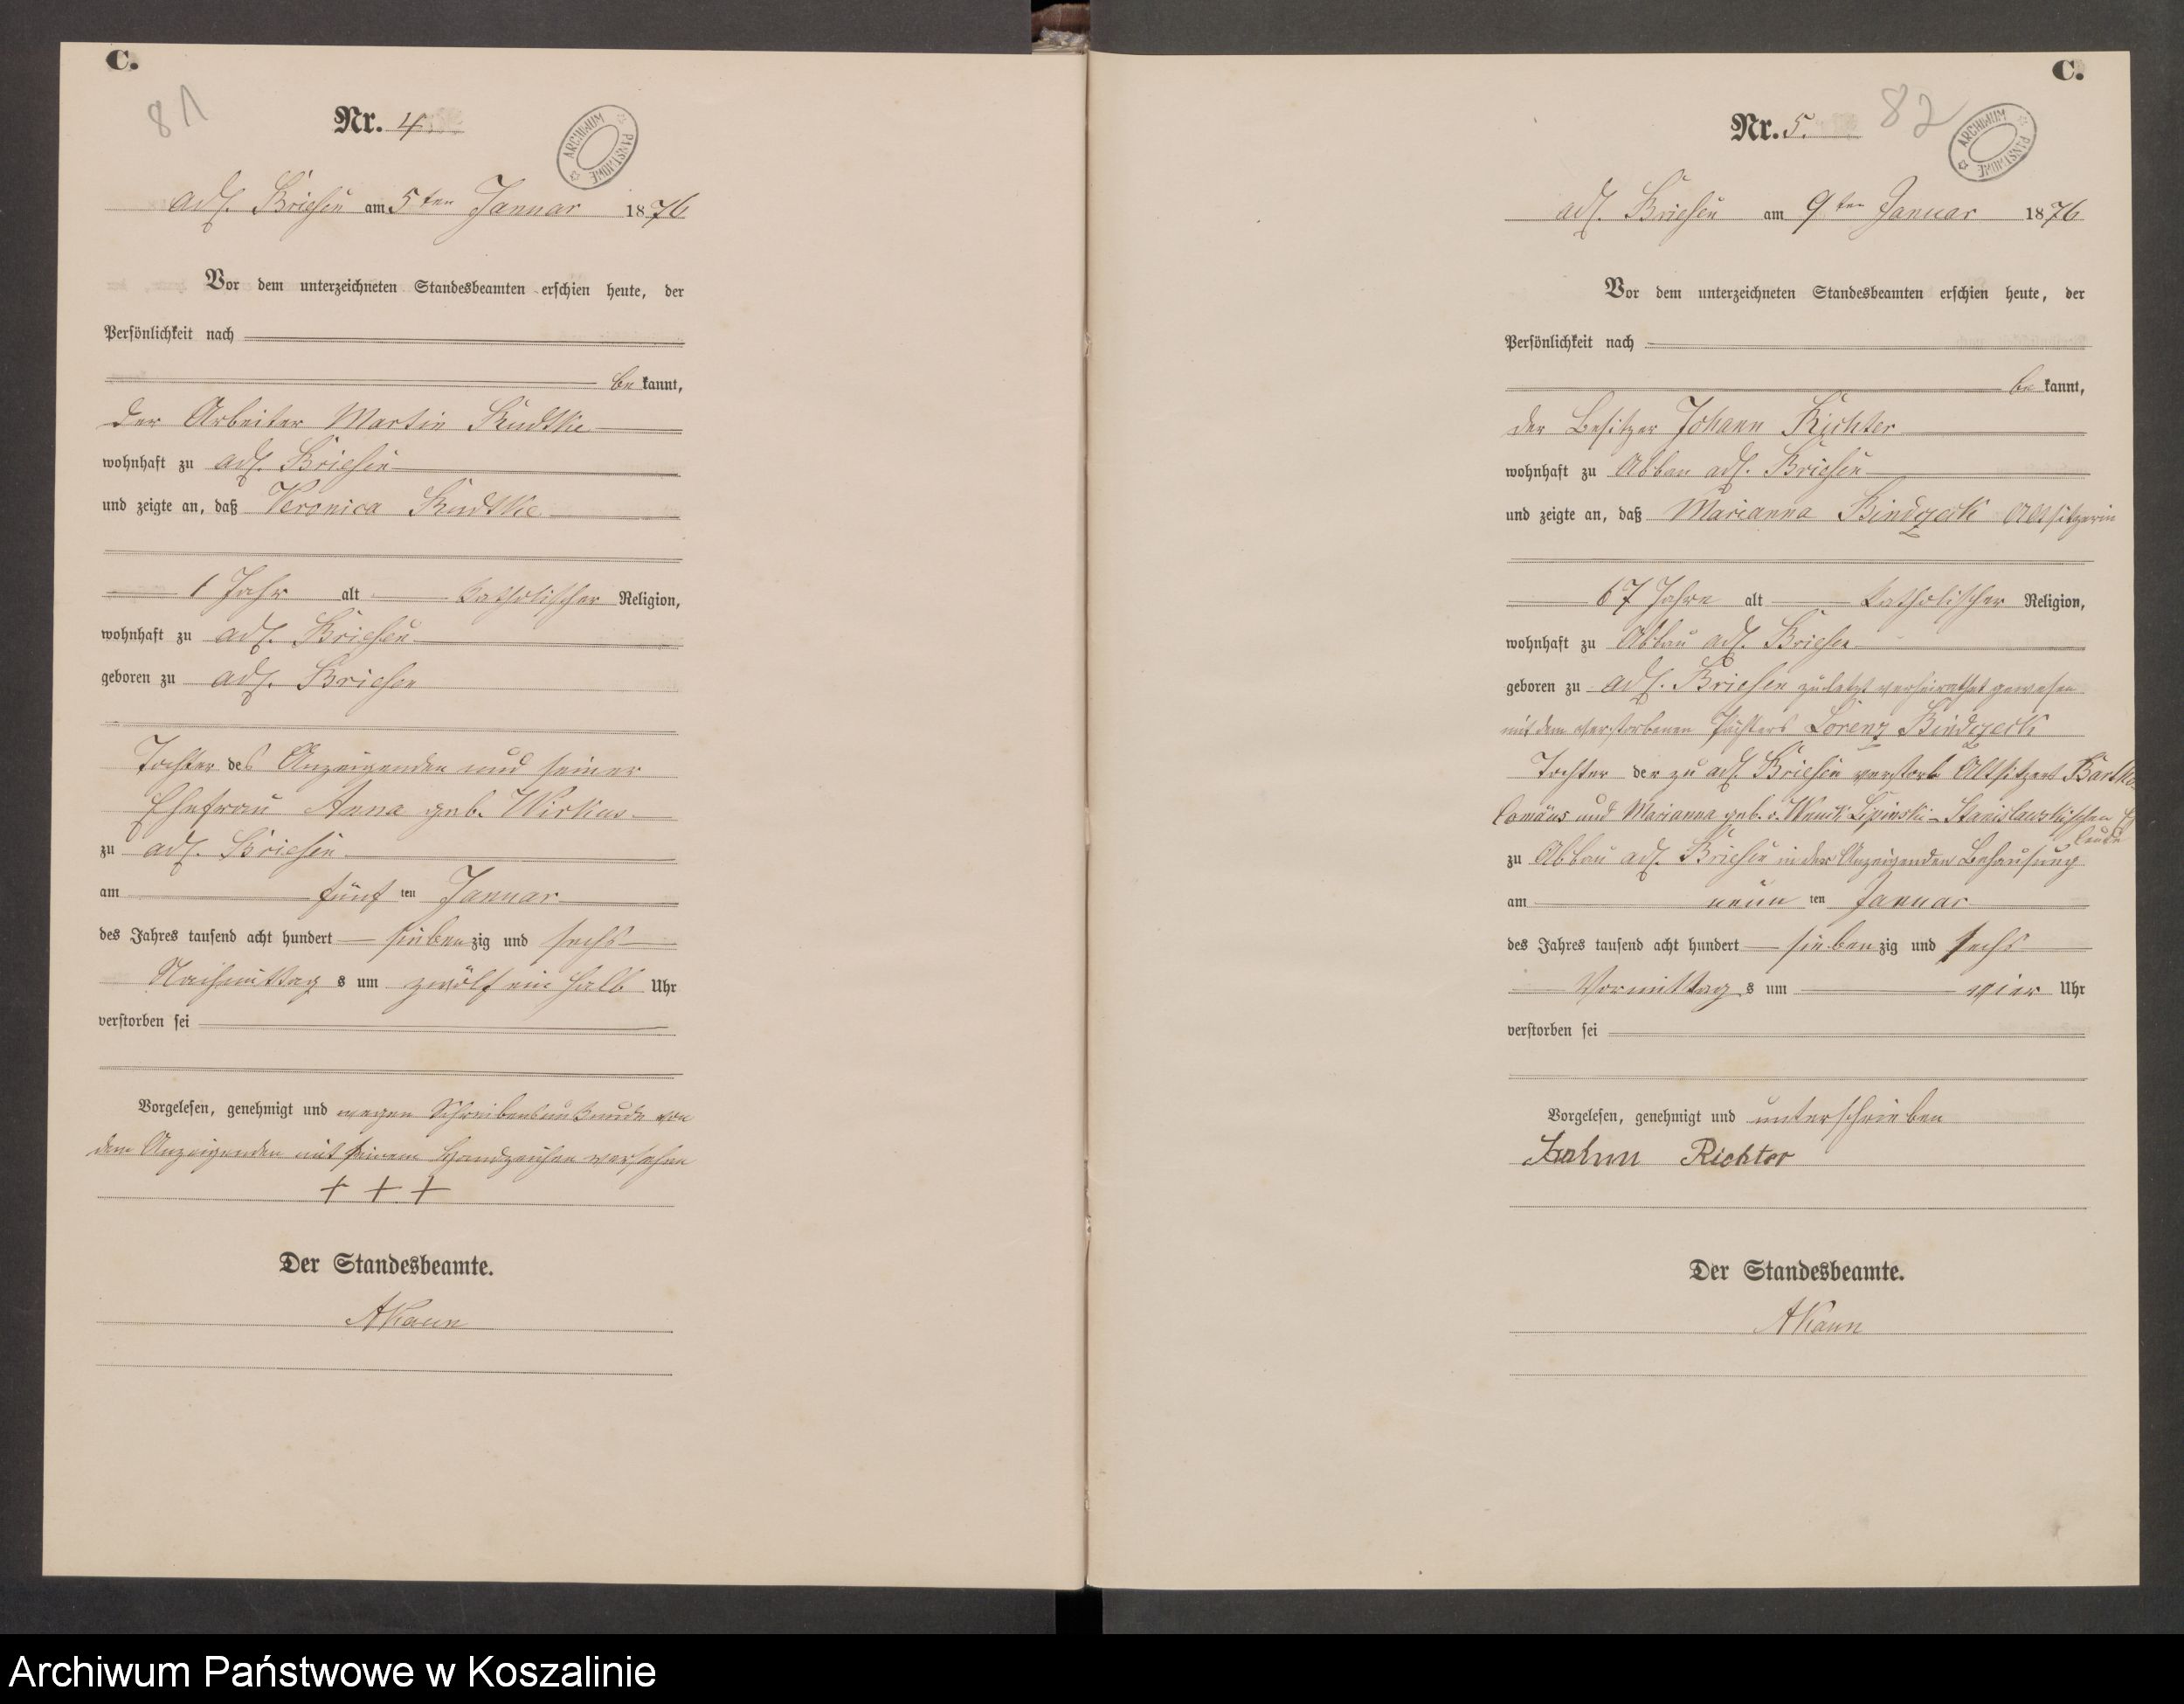 C.
81
Nr. 4
ARCHIWUM PAŃSTWOWE
adl. Briesen am 5ten Januar 1876
Vor dem unterzeichneten Standesbeamten erschien heute, der
Persönlichkeit nach
be kannt,
der Arbeiter Martin
wohnhaft zu adl. Briesen
und zeigte an, daß Veronica
1 Jahr alt katholischer Religion,
wohnhaft zu adl. Briesen
geboren zu adl. Briesen
Tochter des Anzeigenden und seiner
Ehefrau Anna geb. Wirkus
zu adl. Briesen
am fünf ten Januar
des Jahres tausend acht hundert siebenzig und sechs
Nachmittag s um zwölf ein halb Uhr
verstorben sei
Vorgelesen, genehmigt und wegen Schreibensunkunde von
dem Anzeigenden mit seinem Handzeichen versehen
+ + +
Der Standesbeamte.
AKaun
C.
82
Nr. 5.
ARCHIWUM PAŃSTWOWE
adl. Briesen am 9ten Januar 1876
Vor dem unterzeichneten Standesbeamten erschien heute, der
Persönlichkeit nach
be kannt,
der Besitzer Johann Richter
wohnhaft zu Abbau adl. Briesen
und zeigte an, daß Marianna Bindzeck Altsitzerin
67 Jahre alt katholischer Religion,
wohnhaft zu Abbau adl. Briesen
geboren zu adl. Briesen zuletzt verheirathet gewesen
mit dem verstorbenen Lorenz Bindzeck
Tochter der zu adl. Briesen verstorb Altsitzers Bartho-
lomäus und Marianna geb. v. Lipinski-Stanislawskischen Eh
leute
zu Abbau adl. Briesen in der Anzeigenden Behausung
am neun ten Januar
des Jahres tausend acht hundert siebenzig und sechs
Vormittag s um vier Uhr
verstorben sei
Vorgelesen, genehmigt und unterschrieben
Johann Richter
Der Standesbeamte.
AKaun
Archiwum Państwowe w Koszalinie